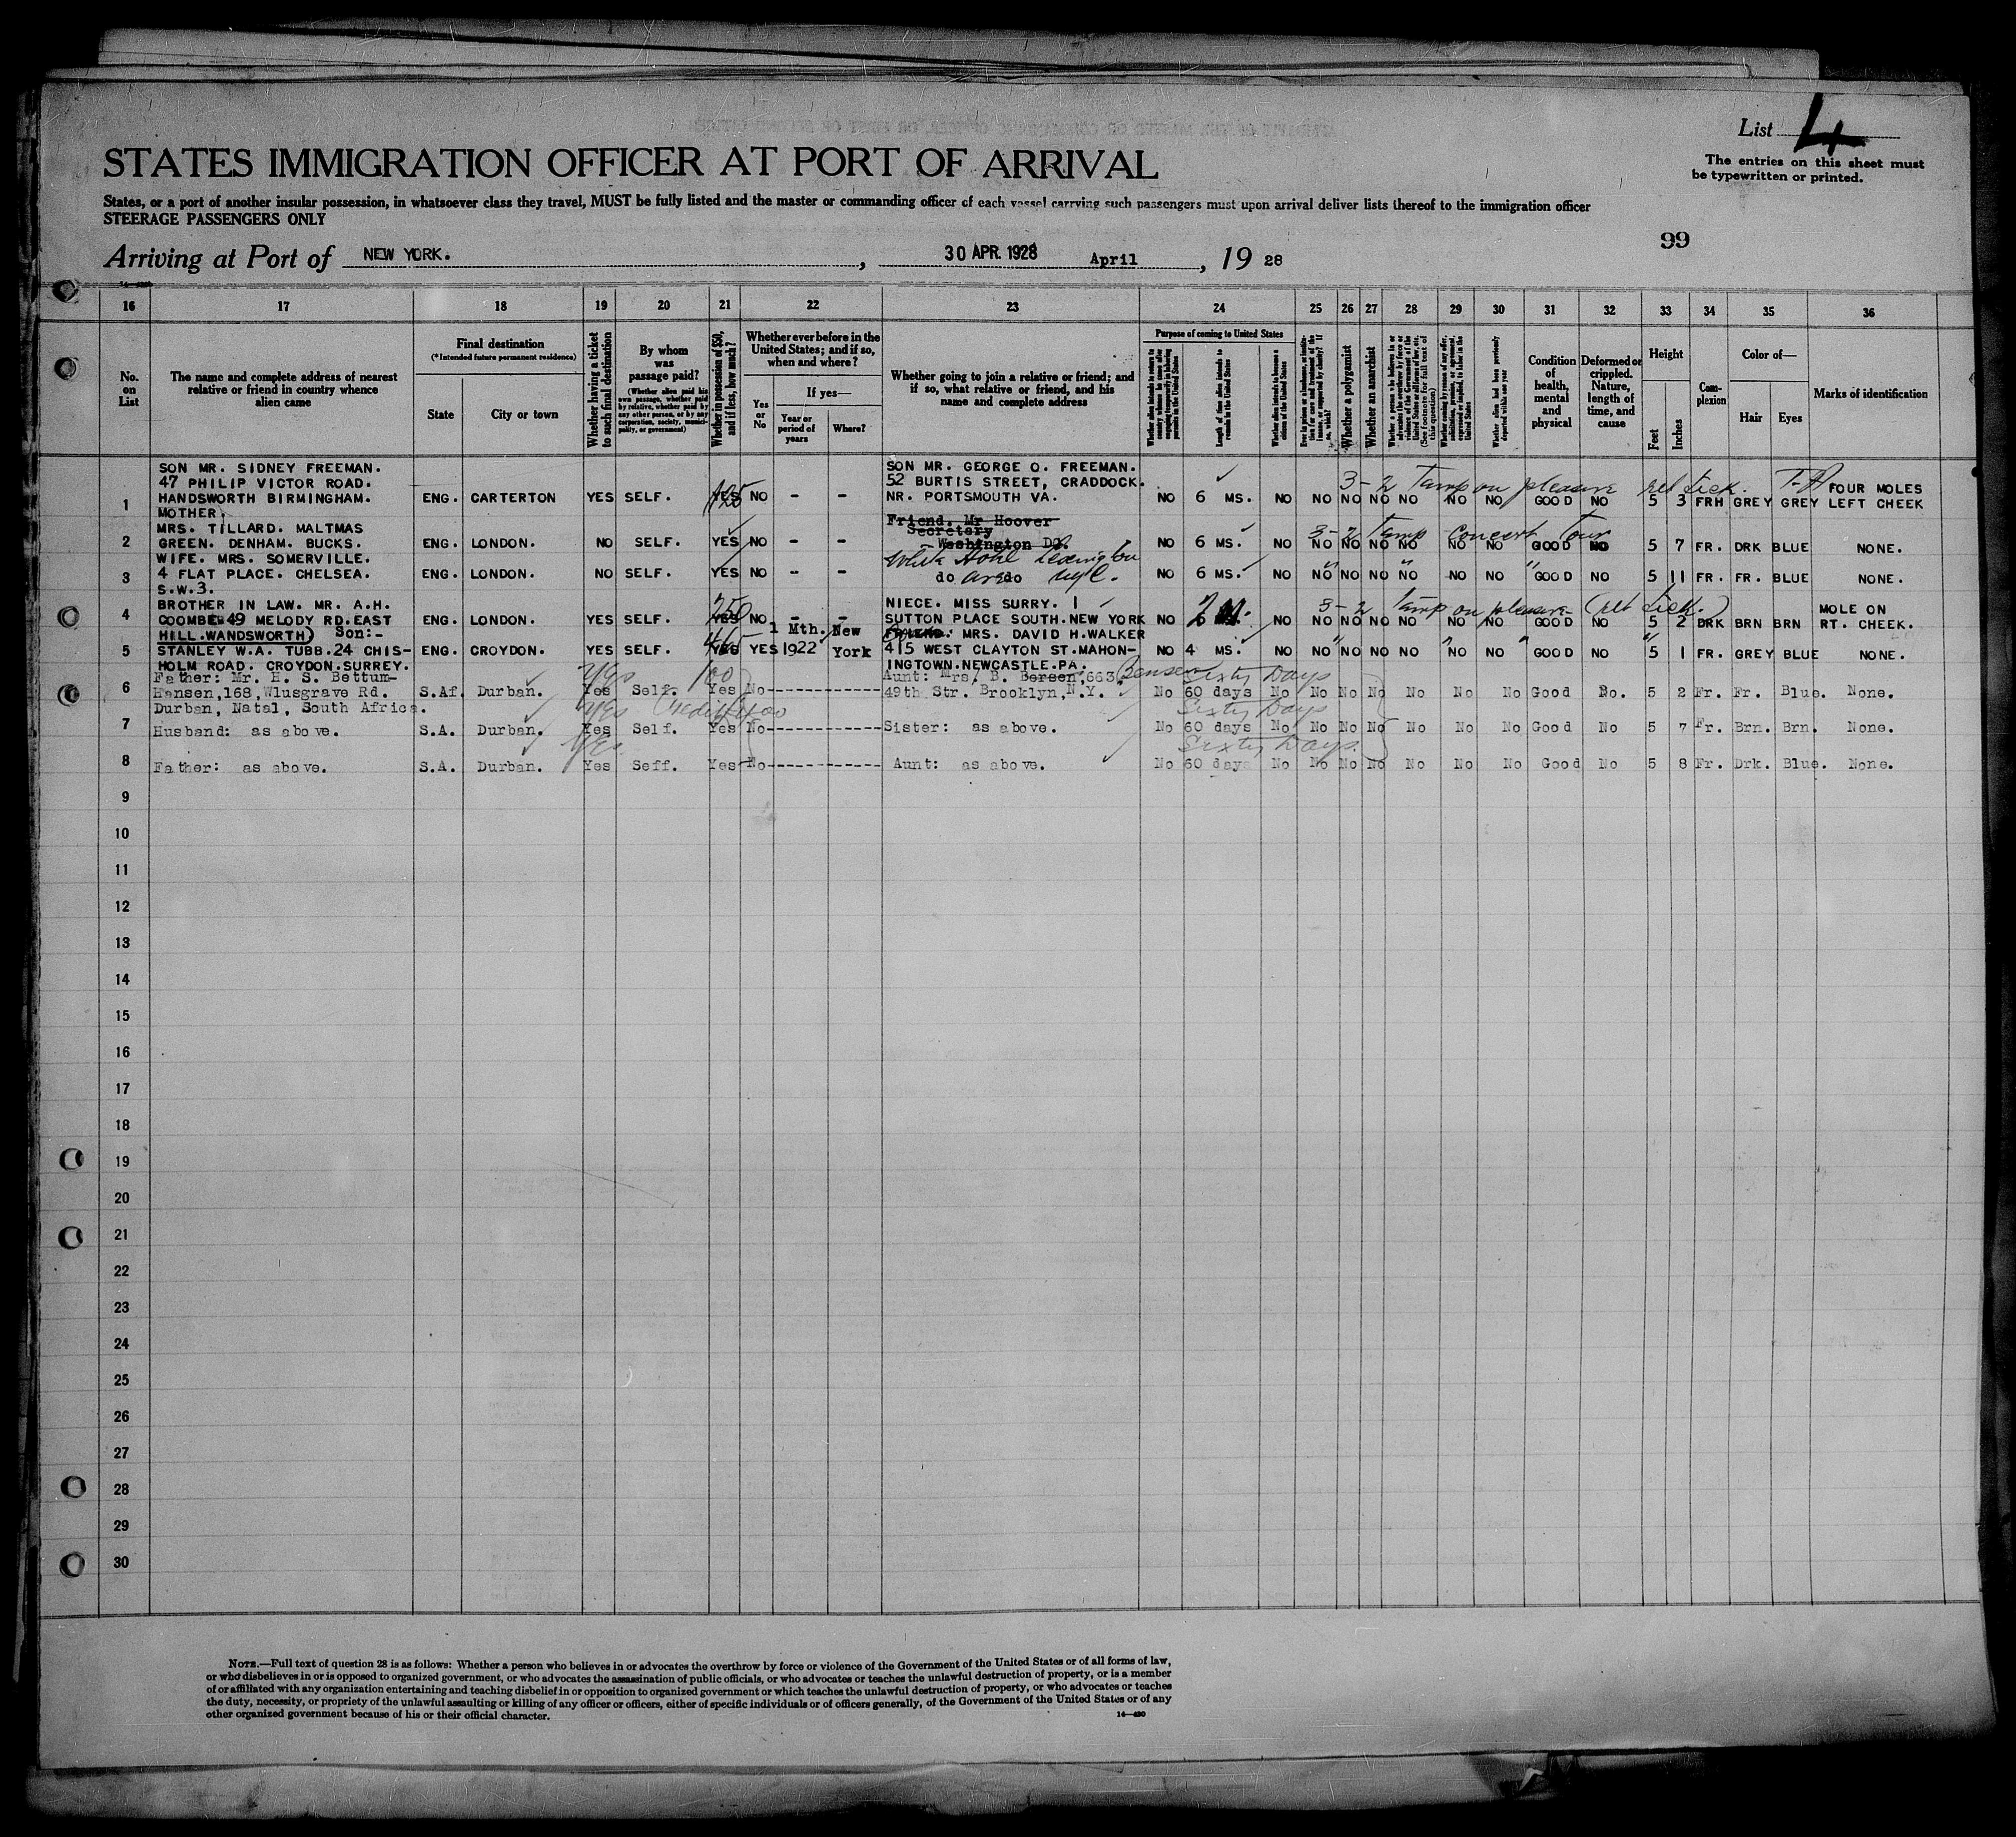 List 4
The entries on this sheet must
be typewritten or printed.
STATES IMMIGRATION OFFICER AT PORT OF ARRIVAL
States, or a port of another insular possession, in whatsoever class they travel, MUST be fully listed and the master or commanding officer of each vessel carrying such passengers must upon arrival deliver lists thereof to the immigration officer
STEERAGE PASSENGERS ONLY
99
Arriving at Port of NEW YORK. , 30 APR. 1928 April , 19 28
16 17 18 19 20 21 22 23 24 25 26 27 28 29 30 31 32 33 34 35 36
No. on List
The name and complete address of nearest
relative or friend in country whence
alien came
Final destination
(*Intended future permanent residence)
State
City or town
Whether having a ticket
to such final destination
By whom
was
passage paid?
(Whether alien paid his
own passage, whether paid
by relative, whether paid by
any other person, or by any
corporation, society, munici-
pality, or government)
Whether in possession of $50,
and if less, how much?
Whether ever before in the
United States; and if so,
when and where?
Yes or No
If yes—
Year or period of years
Where?
Whether going to join a relative or friend; and
if so, what relative or friend, and his
name and complete address
Purpose of coming to United States
Length of time alien intends to
remain in the United States
Whether alien intends to become a
citizen of the United States
Whether a polygamist
Whether an anarchist
(See footnote for full text of
this question)
Whether alien had been previously
deported within one year
Condition
of
health,
mental
and
physical
Deformed or
crippled.
Nature,
length of
time, and
cause
Height
Feet
Inches
Com-
plexion
Color of—
Hair
Eyes
Marks of identification
SON MR. SIDNEY FREEMAN.
47 PHILIP VICTOR ROAD.
HANDSWORTH BIRMINGHAM.
1 ENG. CARTERTON YES SELF. YES 125 NO - -
SON MR. GEORGE O. FREEMAN.
52 BURTIS STREET, CRADDOCK.
NR. PORTSMOUTH VA.
NO 6 MS. NO NO NO NO NO NO NO GOOD NO 5 3 FRH GREY GREY FOUR MOLES
LEFT CHEEK
3-2 Temp on pleasure ret tick.
MOTHER.
MRS. TILLARD. MALTMAS
GREEN. DENHAM. BUCKS.
2 ENG. LONDON. NO SELF. YES NO - -
Friend. Mr Hoover
Secretary
Washington DC.
NO 6 MS. NO NO NO NO NO NO NO GOOD NO 5 7 FR. DRK BLUE NONE.
3-2 Temp Concert Tour
WIFE. MRS. SOMERVILLE.
4 FLAT PLACE. CHELSEA.
S.W.3.
3 ENG. LONDON. NO SELF. YES NO - -
Hotel Lexington
do do
Ave NYC.
NO 6 MS. NO NO NO NO NO NO NO GOOD NO 5 11 FR. FR. BLUE NONE.
BROTHER IN LAW. MR. A.H.
COOMBE 49 MELODY RD. EAST
HILL. WANDSWORTH)
4 ENG. LONDON. YES SELF. YES 250 NO - -
NIECE. MISS SURRY. 1
SUTTON PLACE SOUTH. NEW YORK
NO 2 M. NO NO NO NO NO NO NO GOOD NO 5 2 DRK BRN BRN MOLE ON
RT. CHEEK.
3-2 Temp on pleasure (ret tick.)
Son:-
STANLEY W.A. TUBB. 24 CHIS-
HOLM ROAD. CROYDON. SURREY.
5 ENG. CROYDON. YES SELF. YES 465 YES 1 Mth. 1922 New York
MRS. DAVID H. WALKER
415 WEST CLAYTON ST. MAHON-
INGTOWN. NEWCASTLE. PA.
NO 4 MS. NO NO NO NO NO NO NO GOOD NO 5 1 FR. GREY BLUE NONE.
Father: Mr. H. S. Bettum-
Hansen, 168, Wlusgrave Rd.
Durban, Natal, South Africa.
6 S.Af. Durban. Yes Yes Self. Yes 100 No
Aunt: Mrs. B. Bersen, 663, Bensen
49th Str. Brooklyn, N.Y.
No 60 days Sixty Days No No No No No No No Good No. 5 2 Fr. Fr. Blue. None.
7 Husband: as above. S.A. Durban. Yes Yes Self. Yes No
Sister: as above.
No 60 days Sixty Days No No No No No No No Good No 5 7 Fr. Brn. Brn. None.
8 Father: as above. S.A. Durban. Yes Yes Seff. Yes No
Aunt: as above.
No 60 days Sixty Days No No No No No No No Good No 5 8 Fr. Drk. Blue. None.
9
10
11
12
13
14
15
16
17
18
19
20
21
22
23
24
25
26
27
28
29
30
NOTE.—Full text of question 28 is as follows: Whether a person who believes in or advocates the overthrow by force or violence of the Government of the United States or of all forms of law,
or who disbelieves in or is opposed to organized government, or who advocates the assassination of public officials, or who advocates or teaches the unlawful destruction of property, or is a member
of or affiliated with any organization entertaining and teaching disbelief in or opposition to organized government or which teaches the unlawful destruction of property, or who advocates or teaches
the duty, necessity, or propriety of the unlawful assaulting or killing of any officer or officers, either of specific individuals or of officers generally, of the Government of the United States or of any
other organized government because of his or their official character.
14—430